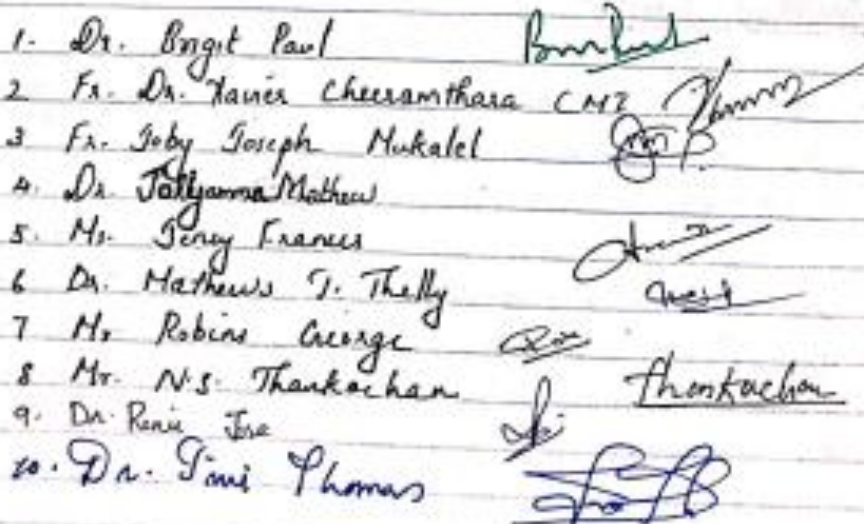 1. Dr. Brigit Paul
2 Fr. Dr. Xavier Cheeramthara CMI
3 Fr. Joby Joseph Mukalel
4. Dr. Jollyamma Mathew
5. Ms. Francis
6 Dr. Mathews T. Thelly
7 Mr Robins George
8 Mr. N.S. Thankachan Thankachan
9. Dr. Renie Jose
10. Dr. Thomas